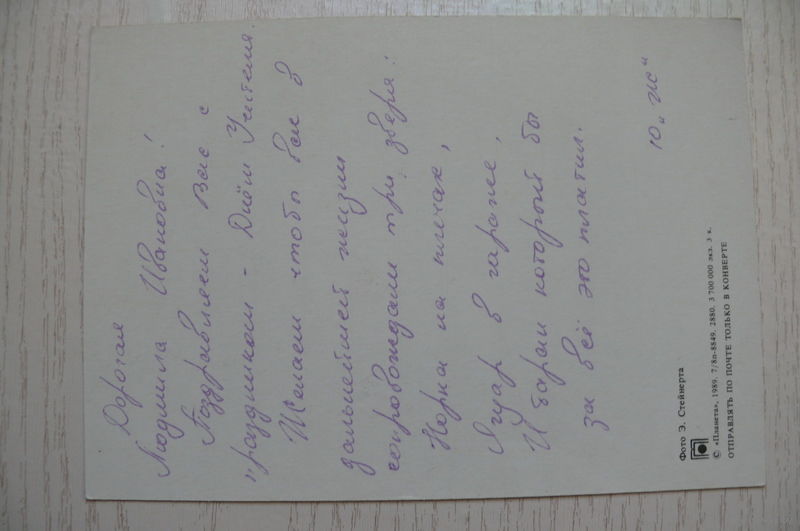 Дорогая
Людмила Ивановна!
Поздравляем Вас с
праздником - Днём Учителя.
Желаем чтобы вас в
дальнейшей жизни
сопровождали три зверя:
Норка на плечах,
Ягуар в гараже,
И баран который бы
за всё это платил.
10 „Ж“
Фото Э. Стейнерта
© «Планета», 1989. 7/8п-8849. 2880. 3 700 000 экз. 3 к.
ОТПРАВЛЯТЬ ПО ПОЧТЕ ТОЛЬКО В КОНВЕРТЕ